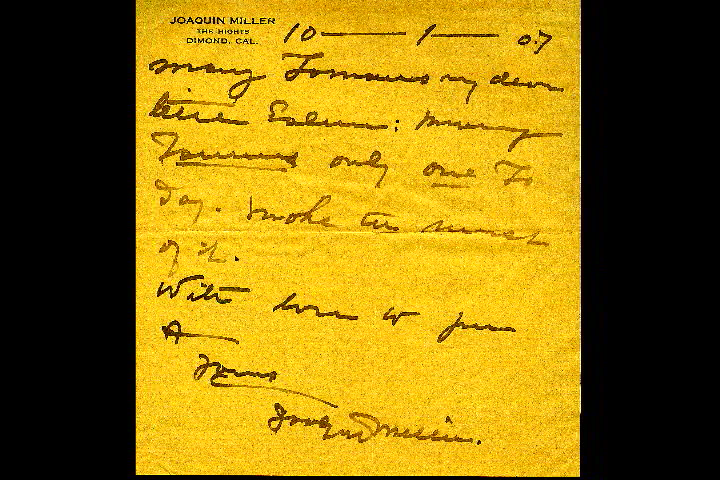 JOAQUIN MILLER
THE HIGHTS
DIMOND, CAL.
10 — 1 — 07
many Tomorrows my dear
: many
Tomorrows only one To
Day. Make the most
of it.
With love to
A
Yours
Joaquin Miller.